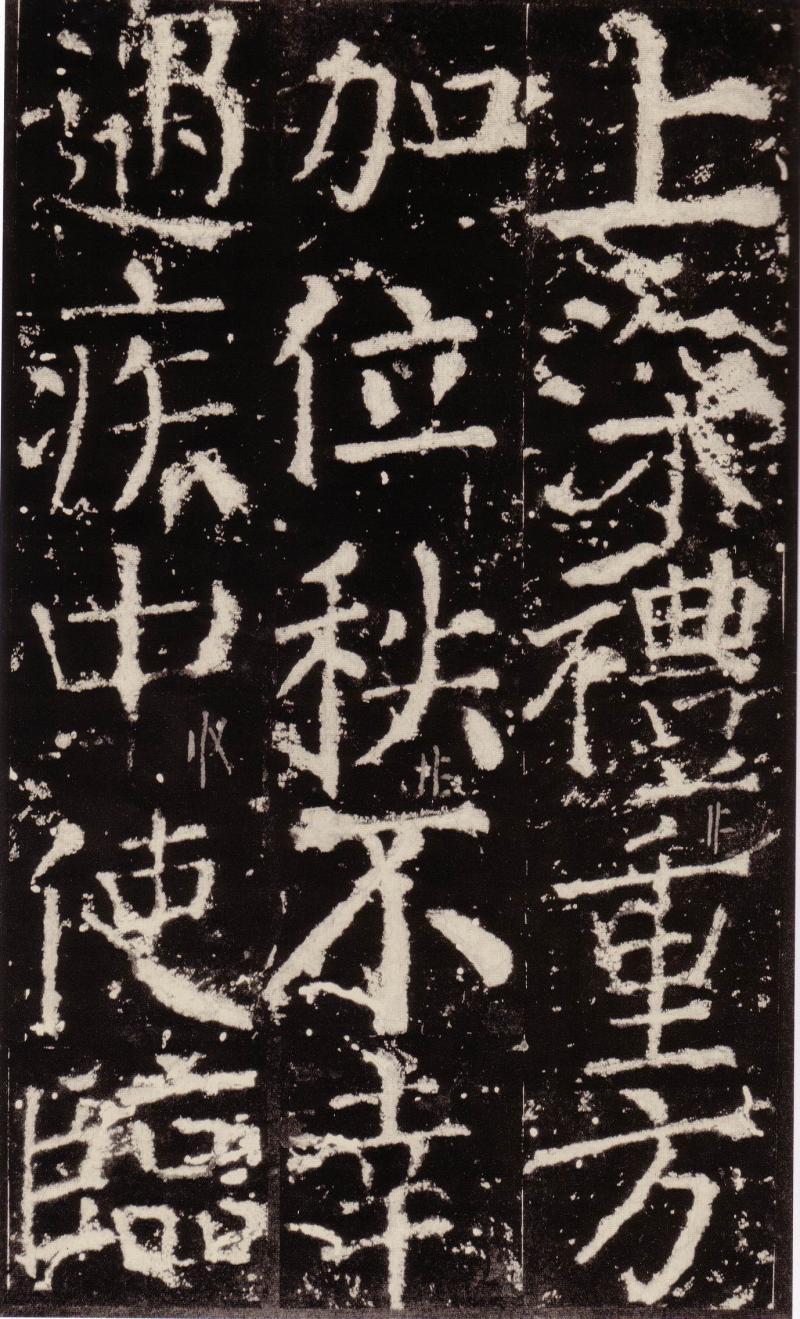 上深禮重方
加位秩不幸
遇疾中使臨